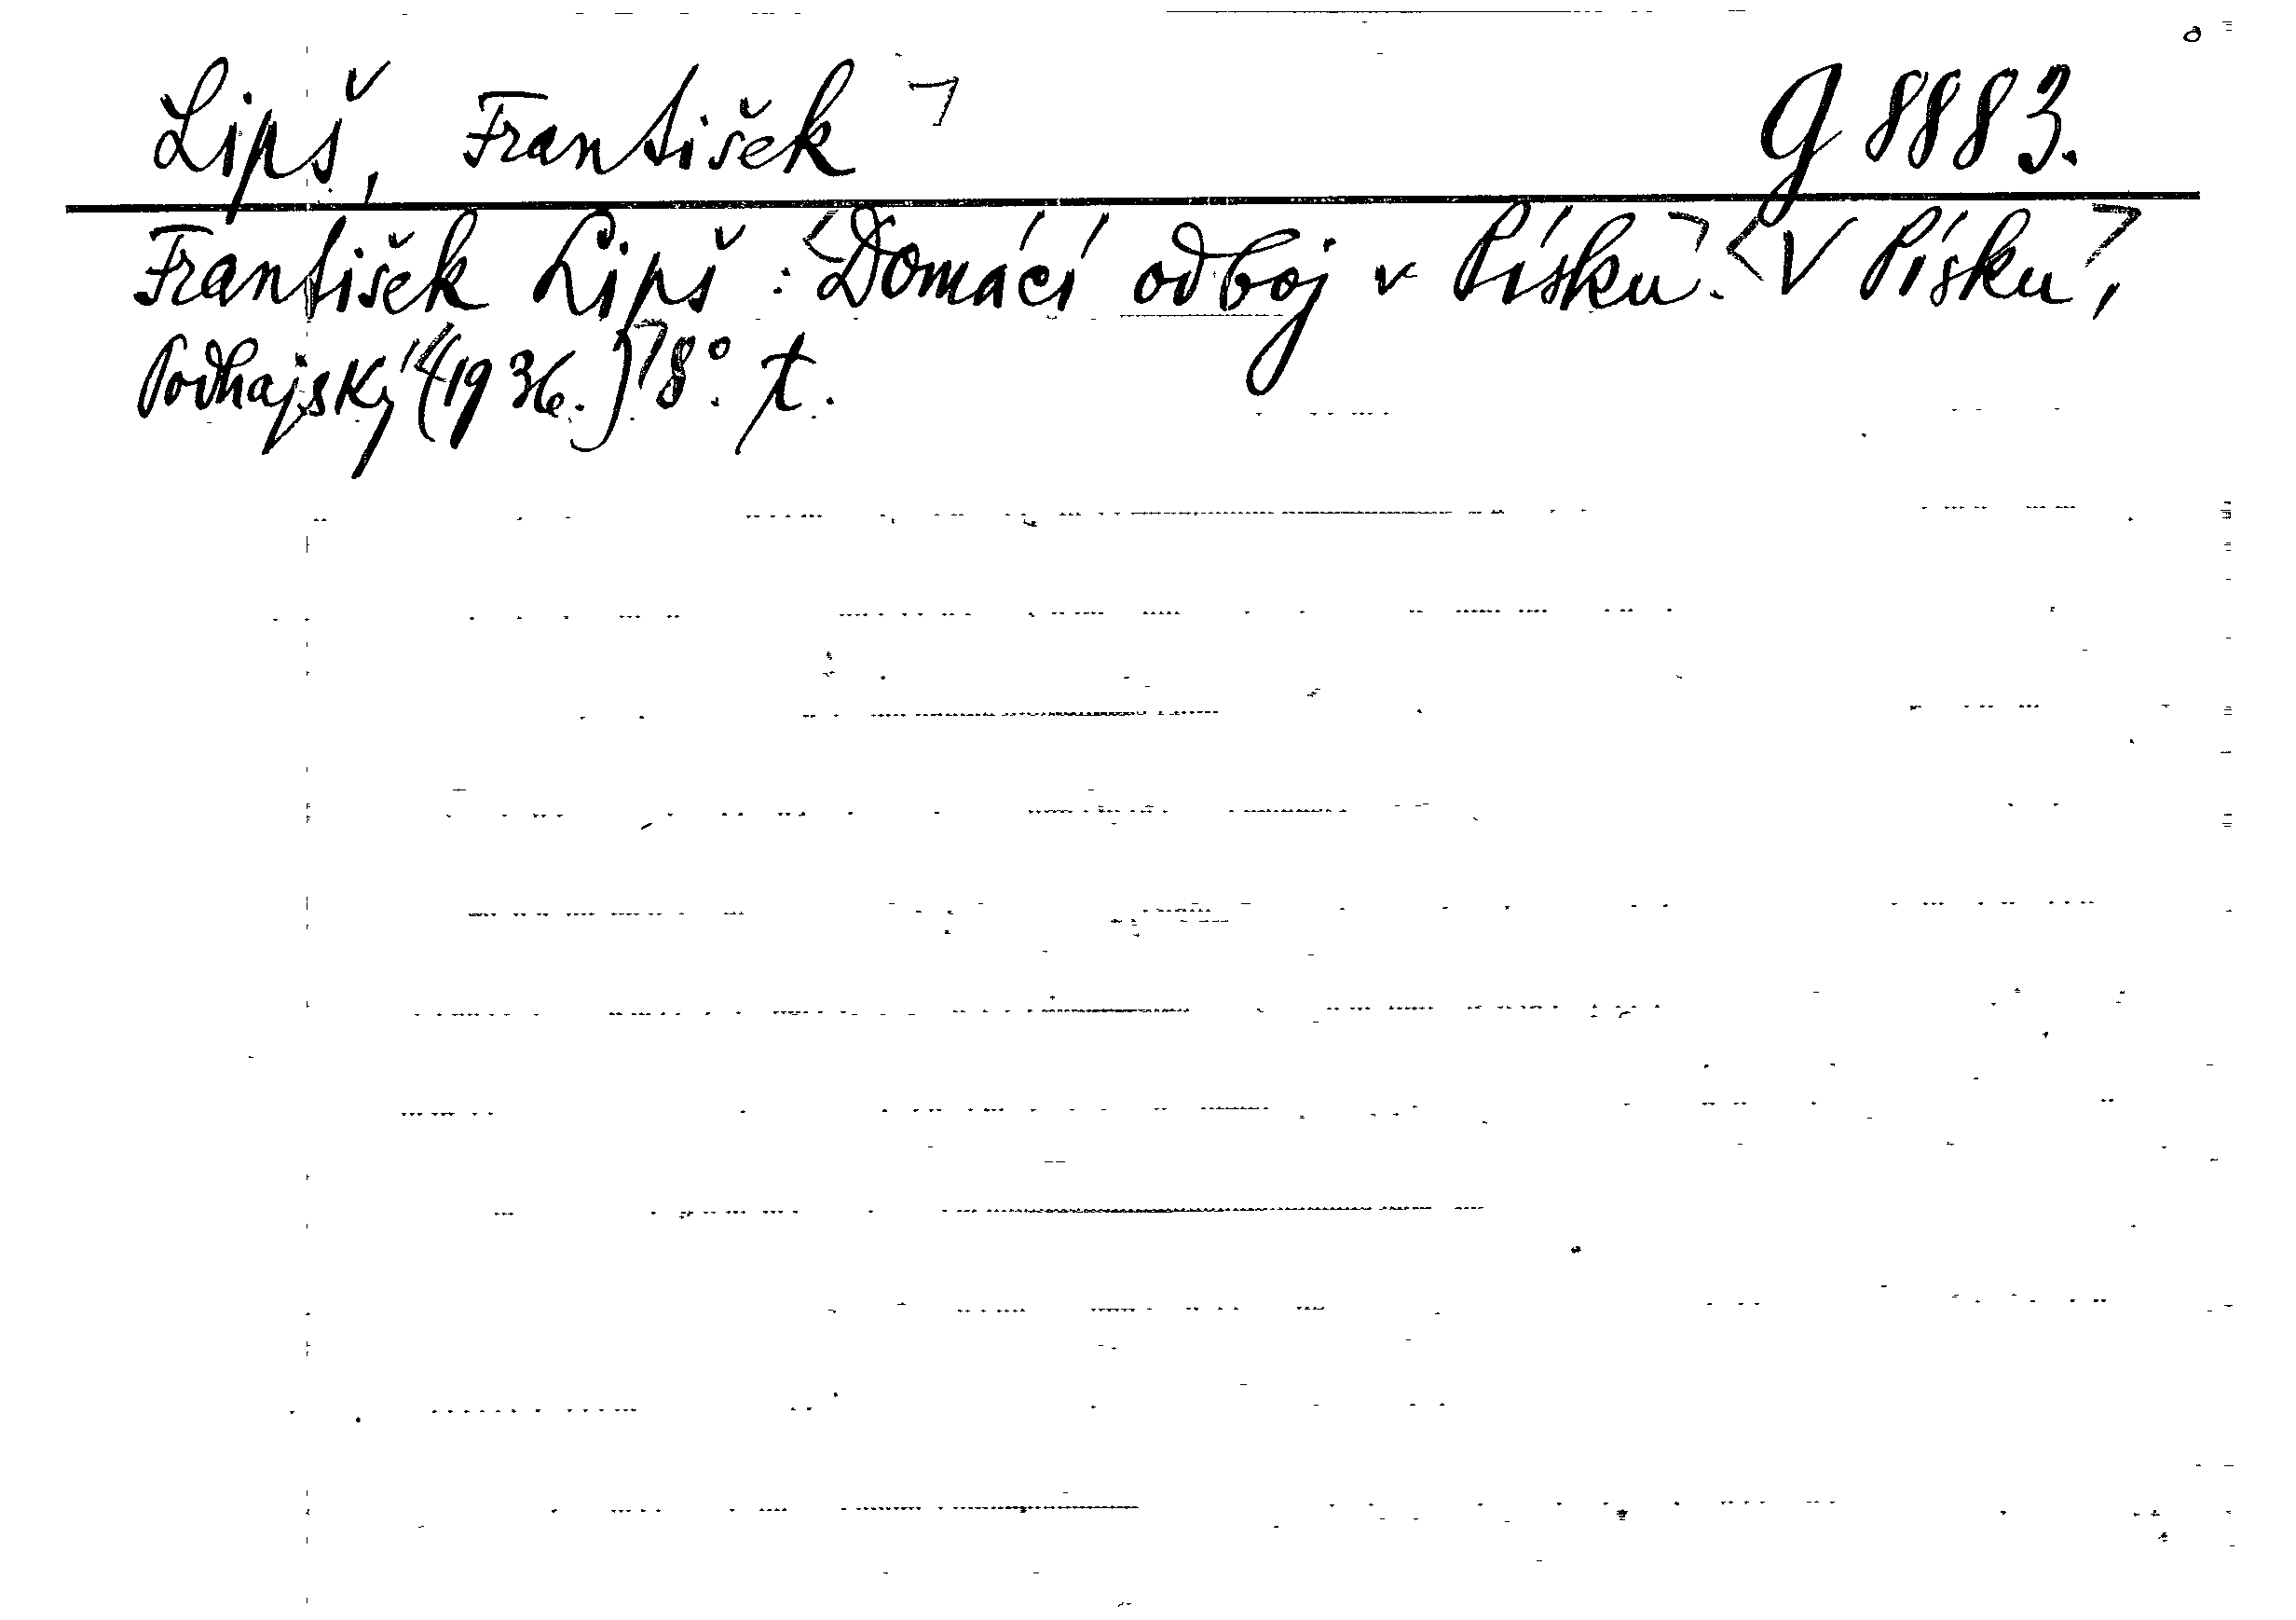 Lipš, František ⌝ G 8883.
František Lipš : <Domácí odboj v Písku⌝. <V Písku⌝,
Podhajský <(1936.)⌝ 8°. t.